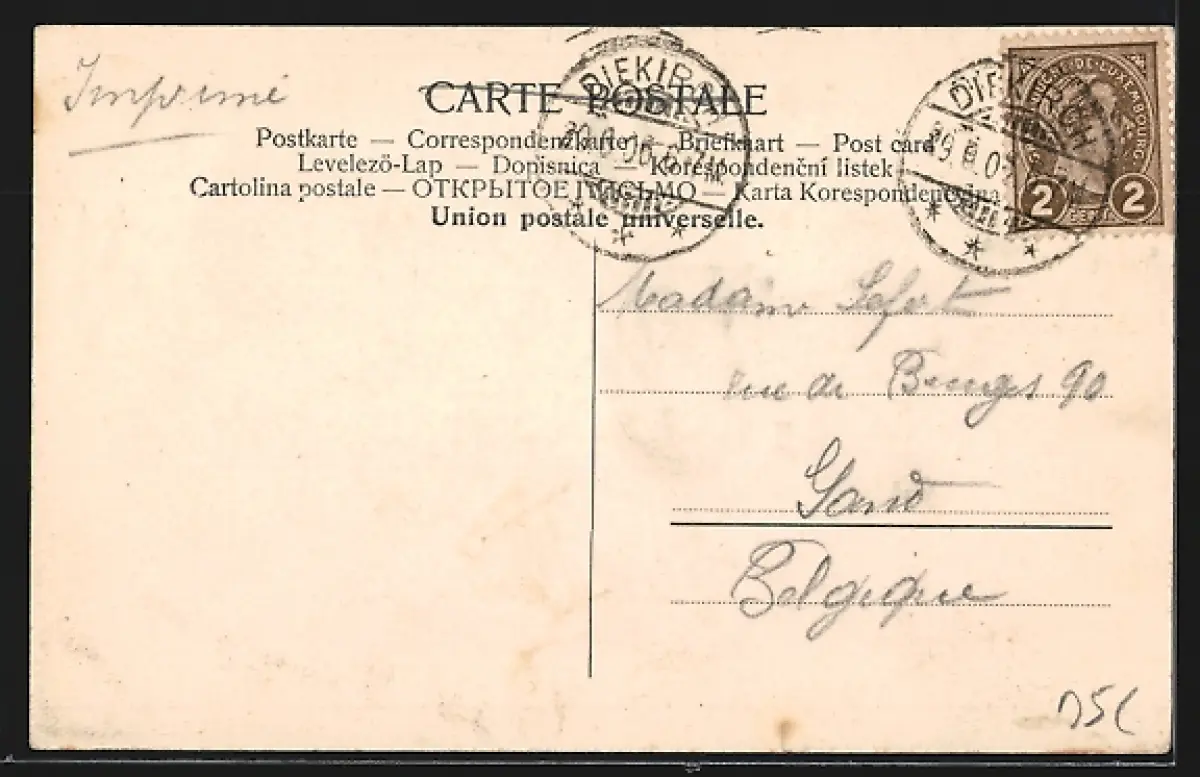 Imprimé
CARTE POSTALE
Postkarte — Correspondenzkarte — Briefkaart — Post card
Levelező-Lap — Dopisnica — Korespondenční listek
Cartolina postale — ОТКРЫТОЕ ПИСЬМО — Karta Korespondencyjna
Union postale universelle.
DIEKIRCH
DIEKIRCH
DUCHÉ DE LUXEMBOURG
2 CENT. 2
Madame Lefert
rue de Bruges 90
Gand
Belgique